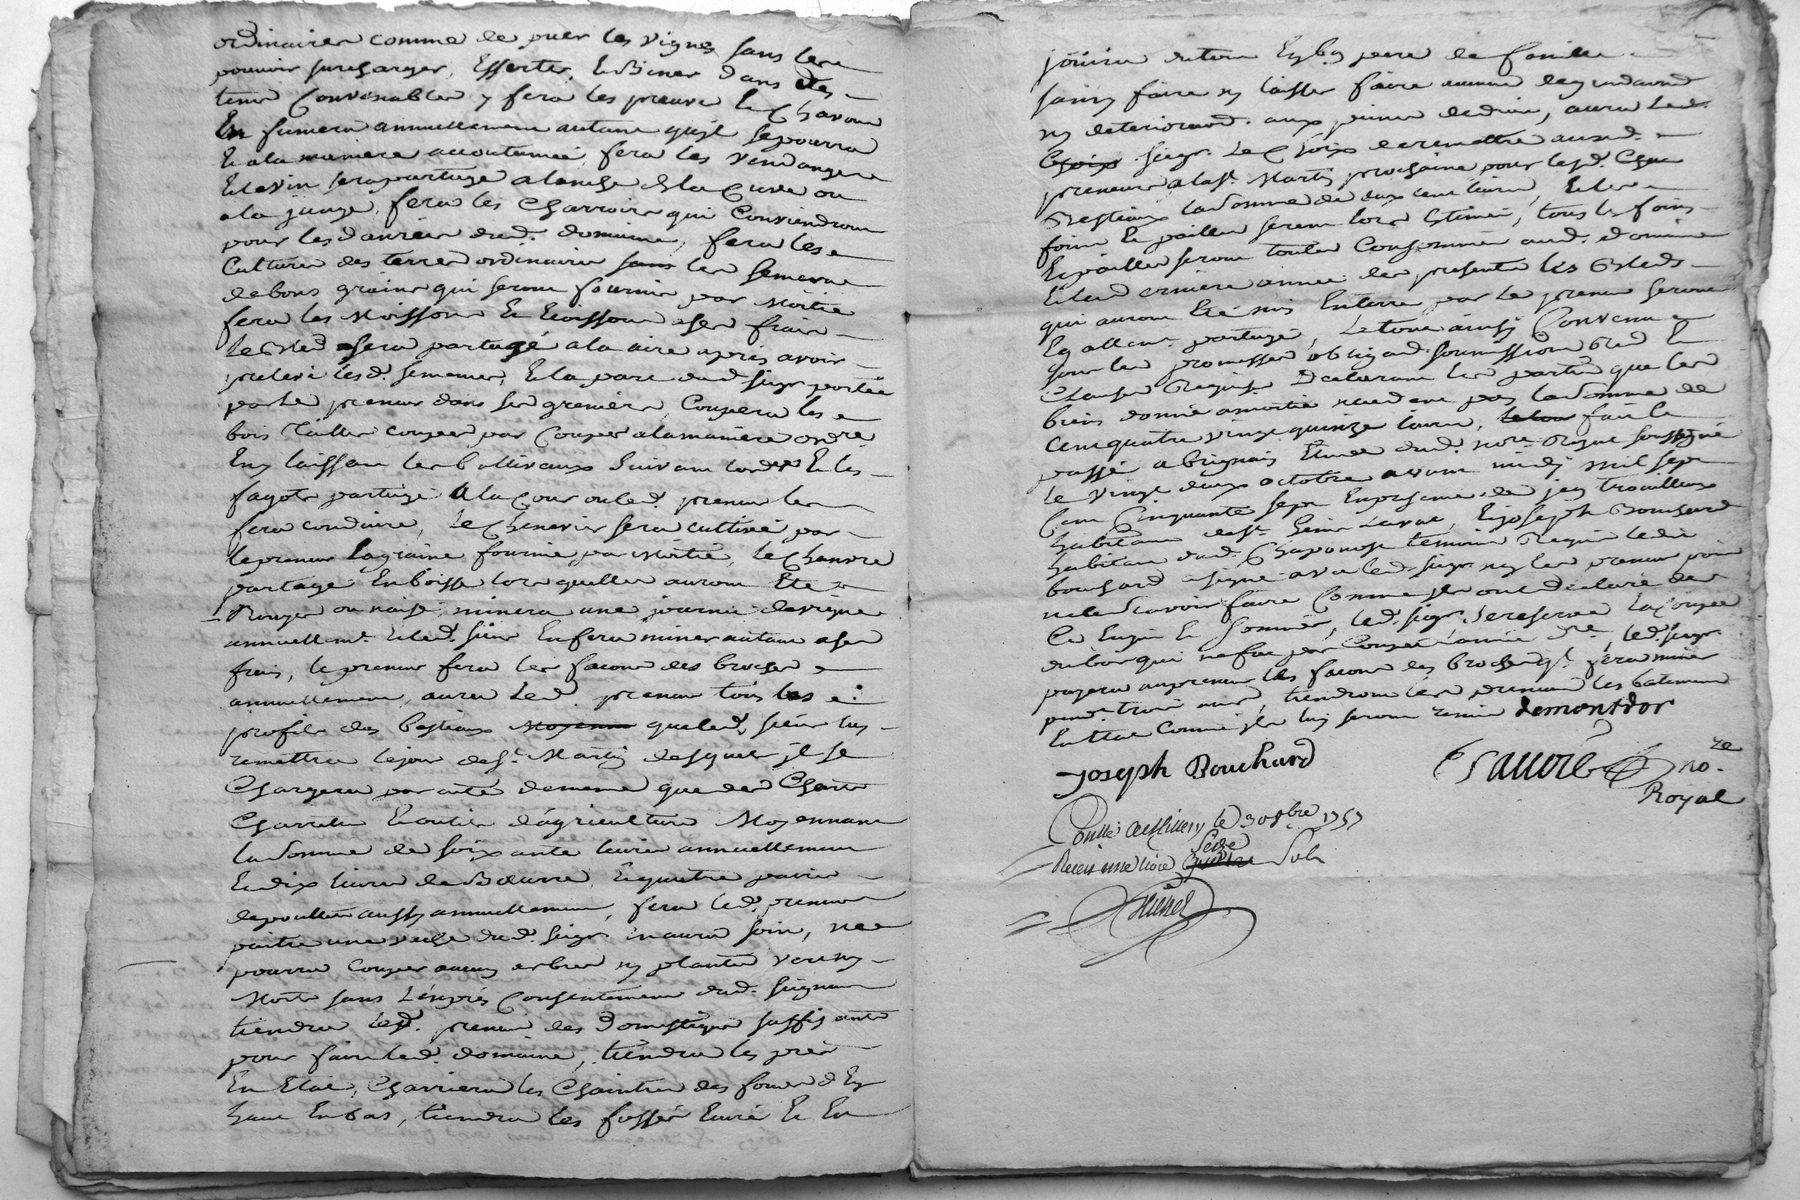 ordinaires comme de puer les vignes sans les
pouvoir surcharger, Essertes, & Biner dans des
tems Convenables y fera les preuve le Chavon
En fumera annuellement autant quil se pourra
Et a la maniere accoutumée, fera les vendanges
Et le vin sera partagé a lanche de la Cuve ou
a la jauge, fera les Charrois qui Conviendront
pour les danrées dud. domaine, fera les
Cultures des terres ordinaires sans les semera
de bons grains qui seront fournis par Moitié
fera les Moissons & Eeissons a ses frais
Le Bled sera partagé a la aire apres avoir
prelevé lesd. semences, Et la part dud. sieur portée
par le preneur dans ses greniers, Coupera les
bois Taillis coupes par Coupes a la maniere ordre
En y laissant les ballivaux suivant lord.re Et les
fagots partagé a la Cour ou led. preneur les
fera conduire, Le Chenevier sera cultivé par
le preneur la graine fournie par Moitié, le Chanvre
partage En boisse lors quelles auront Eté
Rouger ou naisé, minera une journée de vigne
annuellemt. Et led. sieur En fera miner autant a ses
frais, le preneur fera les facons des broches
annuellement, aura led. preneur tous les
profits des Bestiaux Moyenne que led. sieur luy
remettra le jour de St. Martin desquels il se
Chargera par acte de meme que des Chars
Charrettes & outils d'agriculture Moyennant
la somme de soixante livres annuellement
Et dix livres de Beurre, Et quatre paires
de poulets aussy annuellement, sera led. preneur
paitre une vache dud. seigr. En aura soin, ne
pourra couper aucun arbre ny plante verd ny
Morts sans L'exprès Consentement dud. seigneur
tiendra led. preneur des Domestiques suffisants
pour faire led. domaine, tiendra les prés
En Etat, Charriera les Chaintres des fonds d'En
haut En bas, tiendra les fossés Curé Et En
jouira du tout En bon pere de famille
sans y faire ny laisser faire aucune degradaons
ny deterioraons. aux peines de droit, aura led.
Choix seigr. Le Choix de remettre aud.
preneur a la St. Martin prochaine pour lesd. Chars
Bestiaux la somme de deux cent livres, Et les
foins & pailles seront lors Estimés, tous les foins
Et pailles seront toutes Consommés aud. domaine
Et la derniere année des presentes les Bleds
qui auront Eté mis En terre par le preneur seront
Egallemt. partagé, Le tout ainsy Convenu
sous les promesses obligaons. soumissions Bred. &
Clauses Requises Declarant les parties que les
biens donné a moitié n'excedent pas la somme de
Cent quatre vingt quinze livres, le tout fait &
passé a brignais Etude dud. nore. Royal soussigné
le vingt deux octobre avant midy mil sept
Cent Cinquante sept En presence de jean trouilleux
habitant de St. Genis Laval, Et joseph Bouchard
habitant dud. Chaponost temoins Requis led.
bouchard a signé avec led. seigr. ny les preneur pour
ne le scavoir faire Comme ils ont declaré de
Ce Enquis & sommés, led. seigr. se reserve la Coupée
du bois qui ne fut par Coupée l'année dre. led. seigr.
payera au preneur les facons des broches qil. fera miner
pendt. trois ans, tiendront les preneurs les batiments
En Etat Comme ils luy seront remis demontdor
Joseph Bouchard
no.re
Royal
Conllé a St Millery le 3 9bre 1757
Seize
Recu une livre quatre Sols